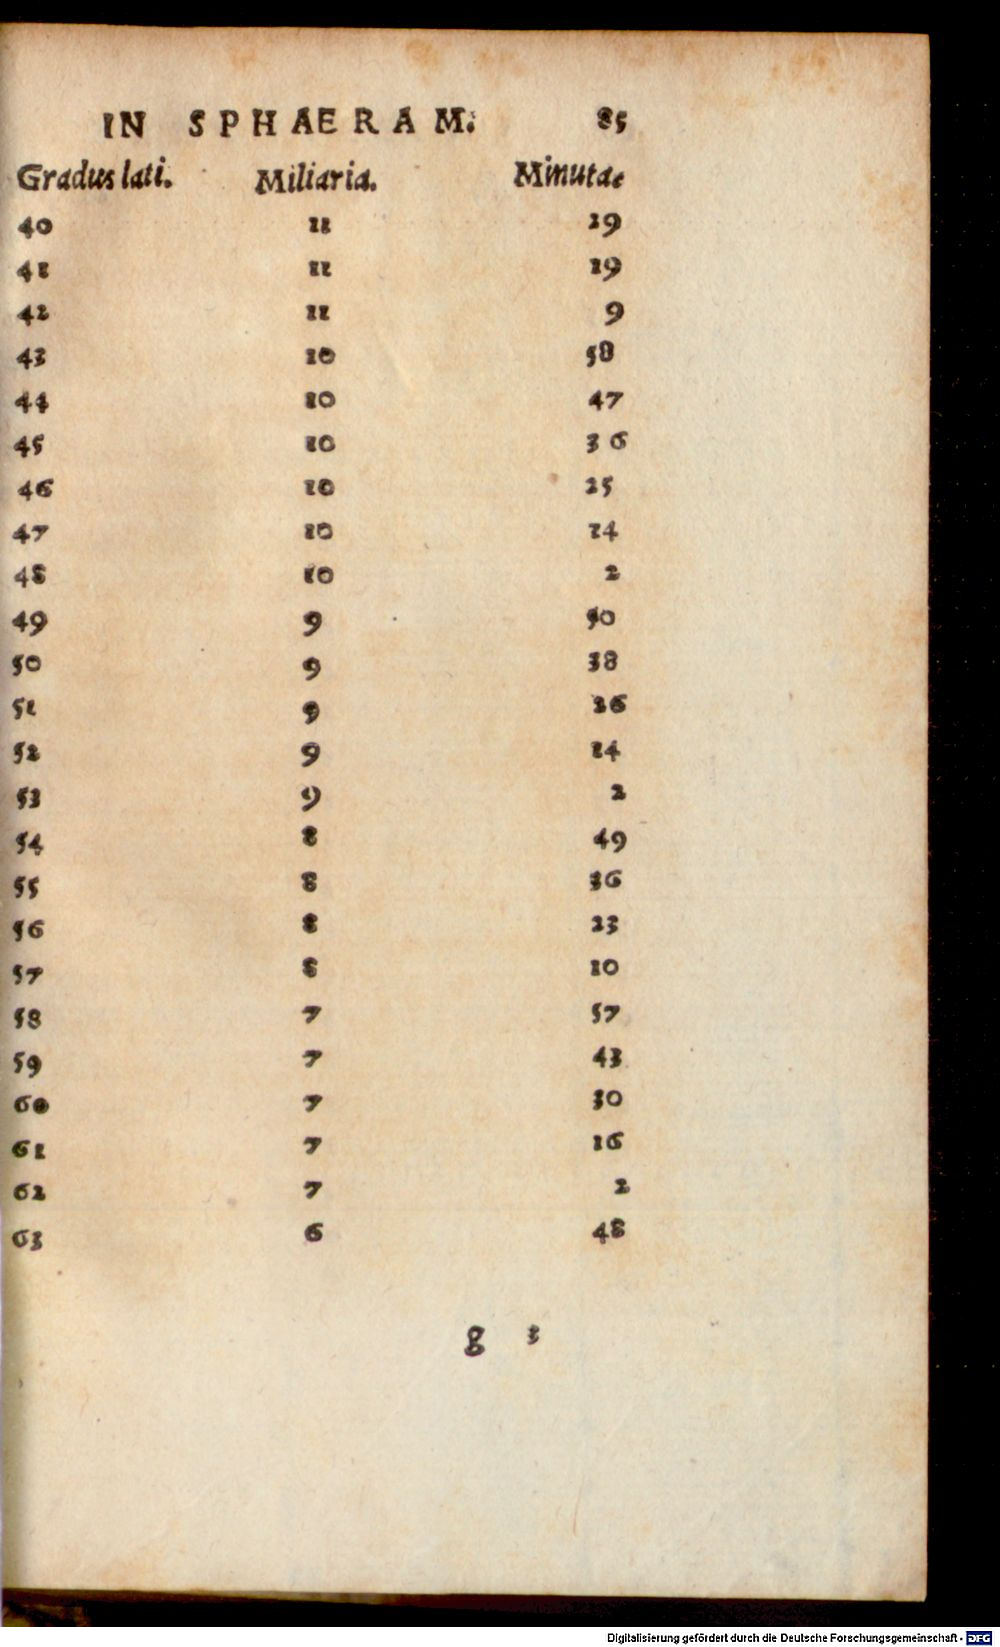 IN SPHAERAM. 85
Gradus lati. Miliaria. Minutae
40 11 29
41 11 19
42 11 9
43 10 58
44 10 47
45 10 36
46 10 25
47 10 14
48 10 2
49 9 50
50 9 38
51 9 26
52 9 14
53 9 2
54 8 49
55 8 36
56 8 23
57 8 10
58 7 57
59 7 43
60 7 30
61 7 16
62 7 2
63 6 48
g 3
Digitalisierung gefördert durch die Deutsche Forschungsgemeinschaft - DFG